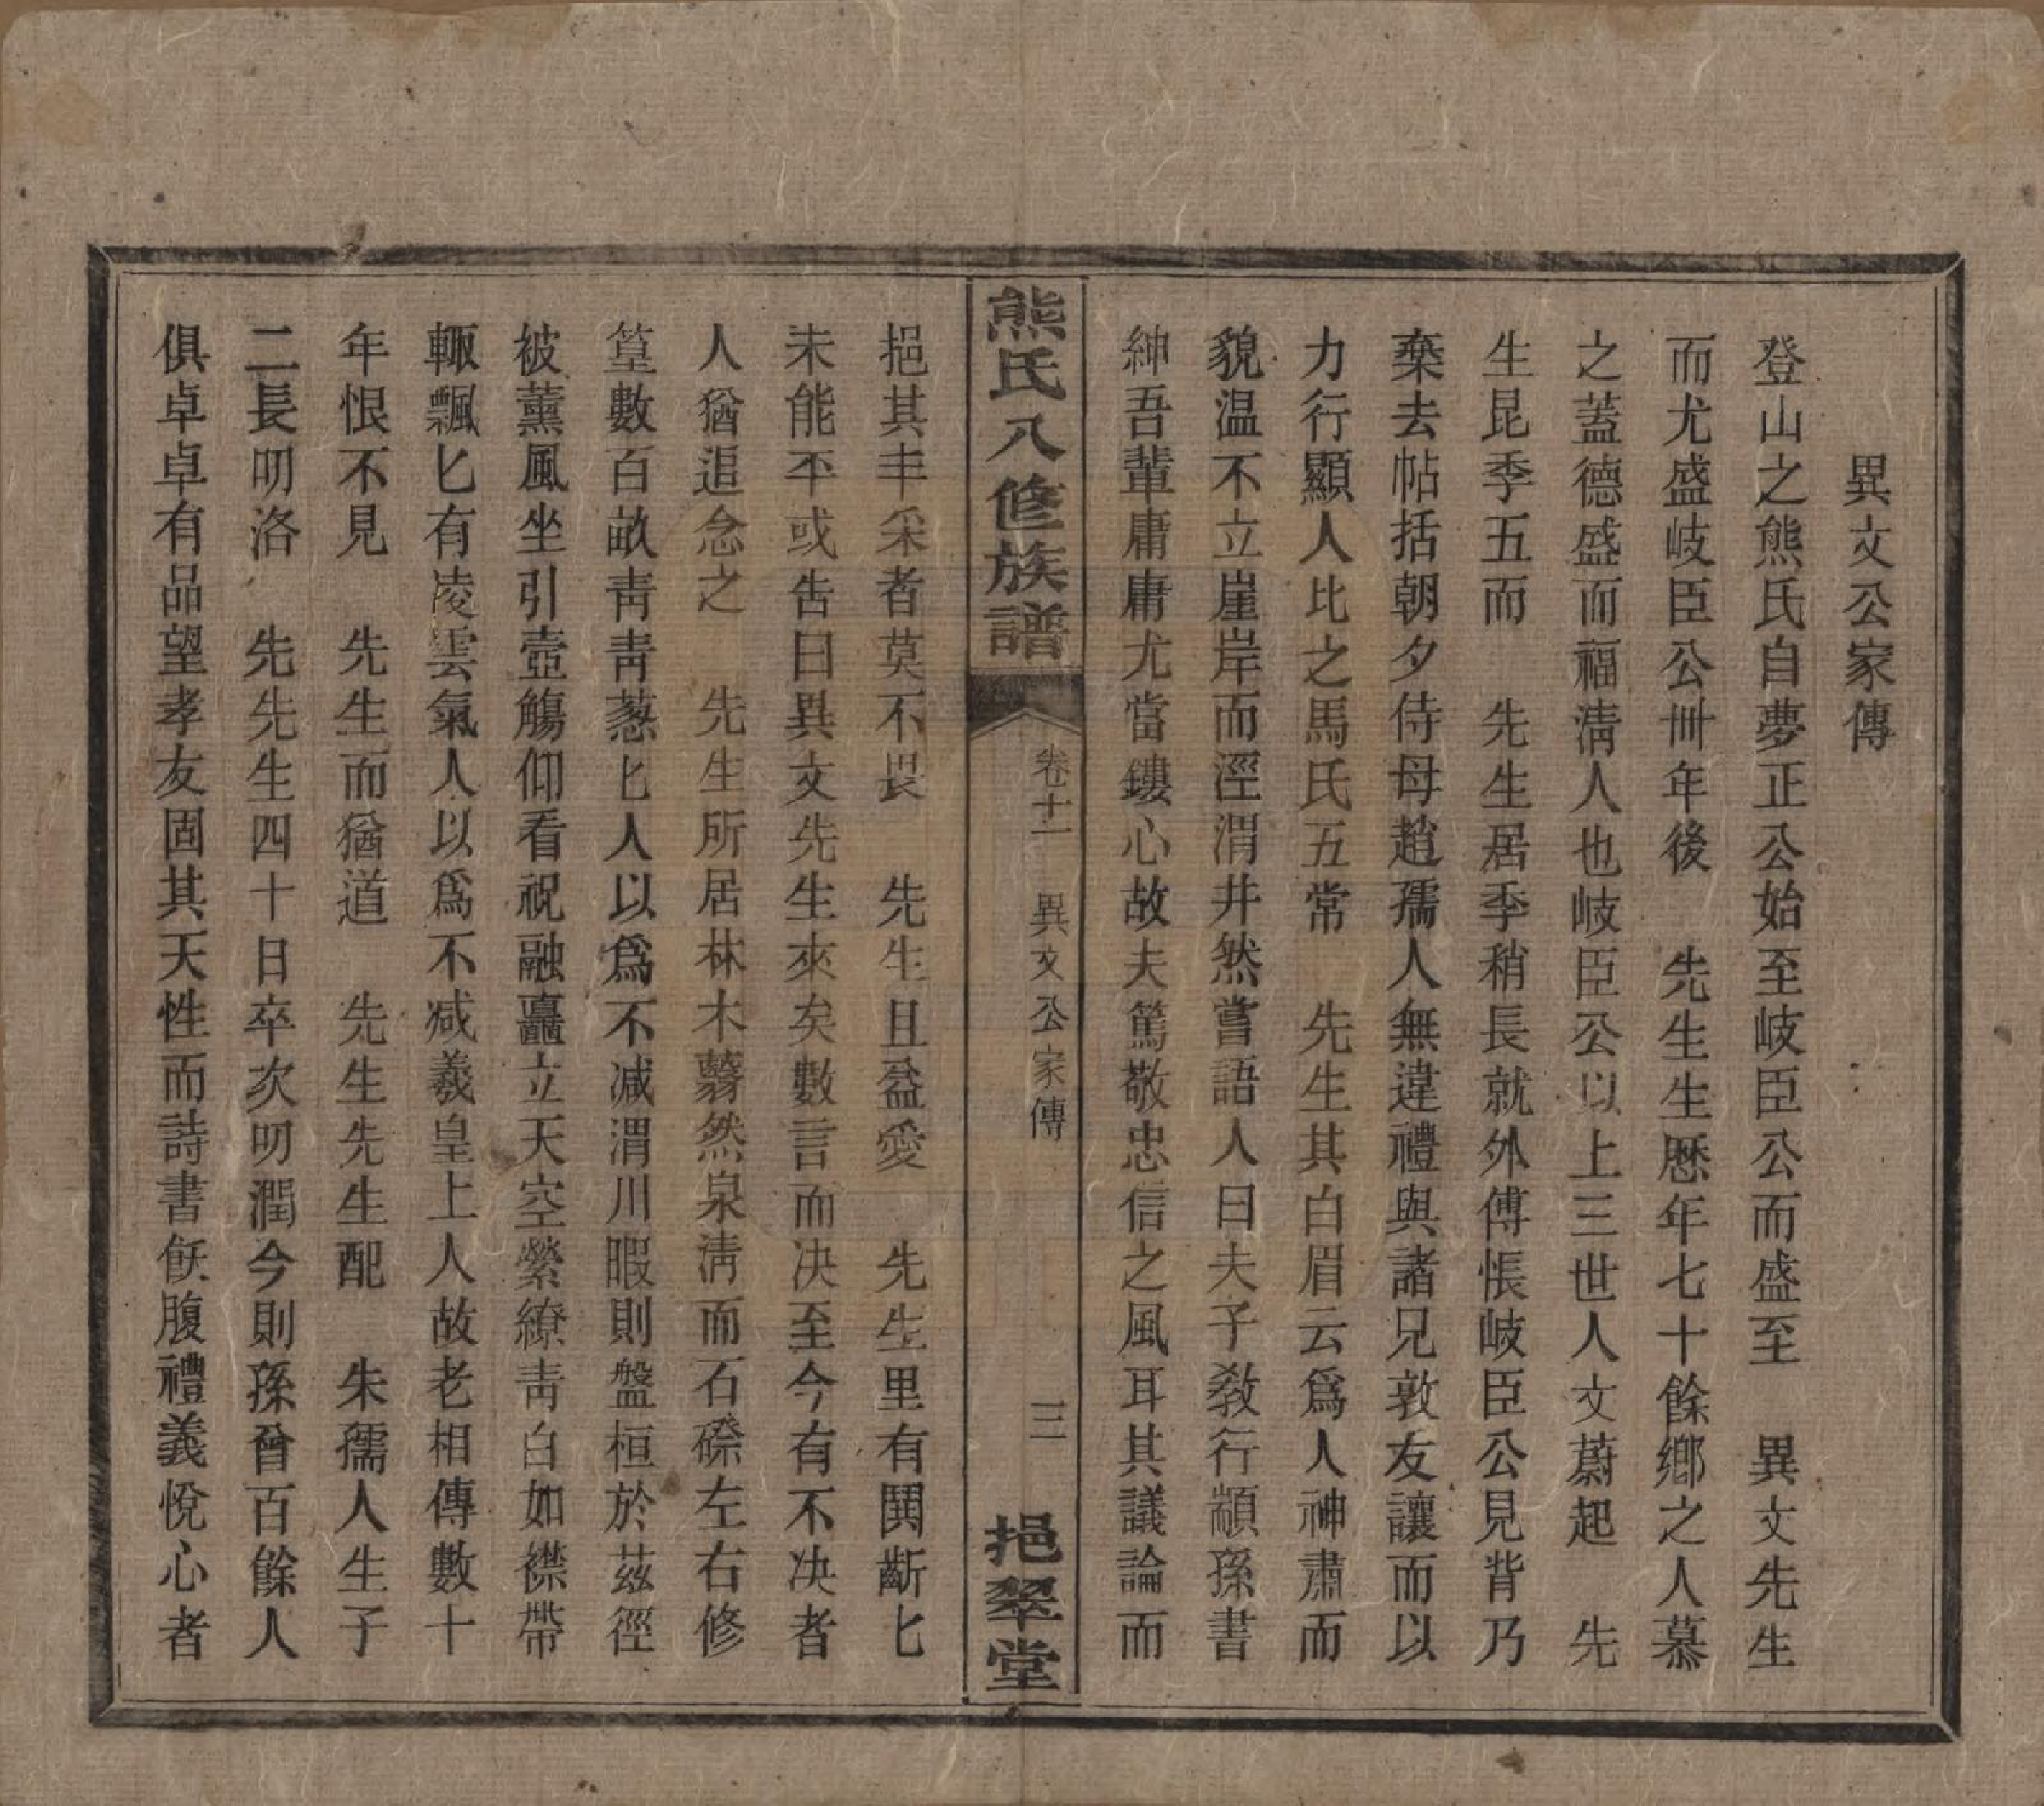 異文公家傳
登山之熊氏自夢正公始至岐臣公而盛至　異文先生
而尤盛岐臣公卌年後　先生生歷年七十餘鄉之人慕
之蓋德盛而福淸人也岐臣公以上三世人文蔚起　先
生昆季五而　先生居季稍長就外傅悵岐臣公見背乃
棄去帖括朝夕侍母趙孺人無違禮與諸兄敦友讓而以
力行顯人比之馬氏五常　先生其白眉云爲人神肅而
貌温不立崖岸而涇渭井然嘗語人曰夫子敎行顓孫書
紳吾輩庸庸尤當鏤心故夫篤敬忠信之風耳其議論而
熊氏八修族譜
卷十一　異文公家傳
三
挹翠堂
挹其丰采者莫不畏　先生且益愛　先生里有鬩齗匕
未能平或吿曰異文先生來矣數言而决至今有不决者
人猶追念之　先生所居林木蘙然泉淸而石磔左右修
篁數百畝靑靑蔥匕人以爲不减渭川暇則盤桓於茲徑
被薰風坐引壺觴仰看祝融矗立天空縈繚靑白如襟帶
輙飄匕有凌雲氣人以爲不减羲皇上人故老相傳數十
年恨不見　先生而猶道　先生先生配　朱孺人生子
二長叨洛　先先生四十日卒次叨潤今則孫曾百餘人
俱卓卓有品望孝友固其天性而詩書飫腹禮義悅心者